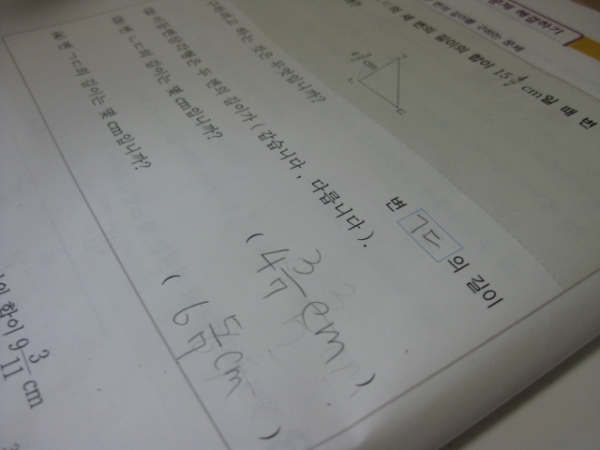 문제 해결하기
세 변의 길이의 합이 15 4/7 cm일 때 변
ㄱ
ㄴ
ㄷ
구하려고 하는 것은 무엇입니까?
변 ㄱㄷ 의 길이
이등변삼각형은 두 변의 길이가 ( 같습니다 , 다릅니다 ).
변 ㄴㄷ의 길이는 몇 cm입니까?
( 4 3/7 cm )
변 ㄱㄷ의 길이는 몇 cm입니까?
( 6 5/7 cm )
합이 9 3/11 cm